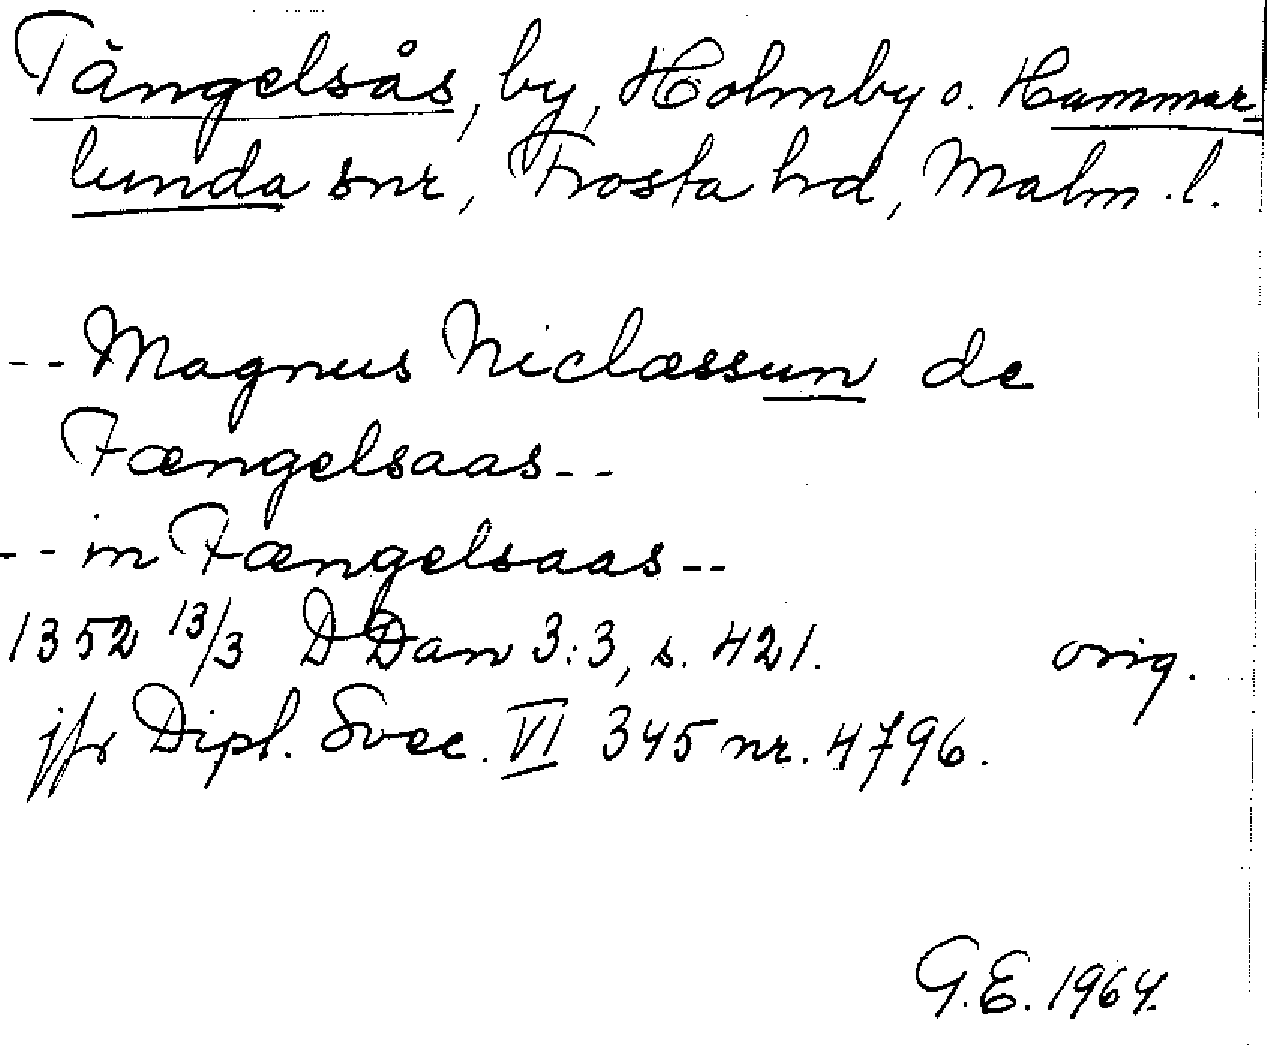 Tängelsås, by, Holmby o. Hammar-
lunda snr, Frosta hd, Malm. l.
-- Magnus Niclæssun de
Fængelsaas --
-- in Fængelsaas --
1352 13/3 D Dan 3:3, s. 421. orig.
jfr Dipl. Svec. VI 345 nr. 4796.
G.E. 1964.